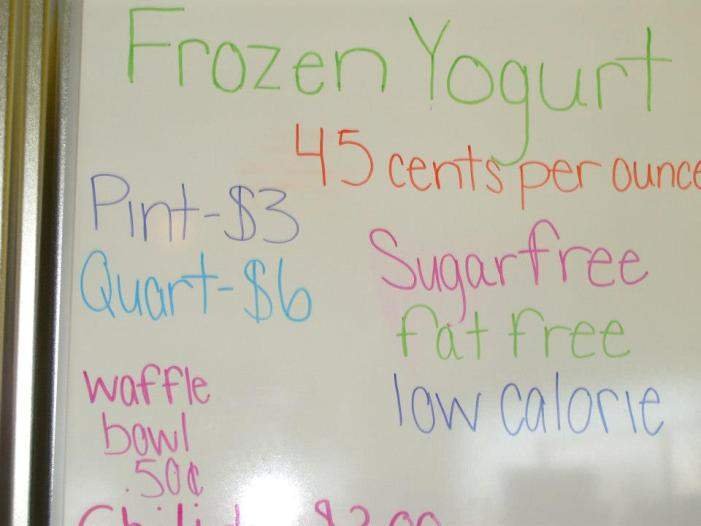 Frozen Yogurt
45 cents per ounce
Pint-$3
Quart-$6
Sugar free
fat free
low calorie
waffle
bowl
.50¢